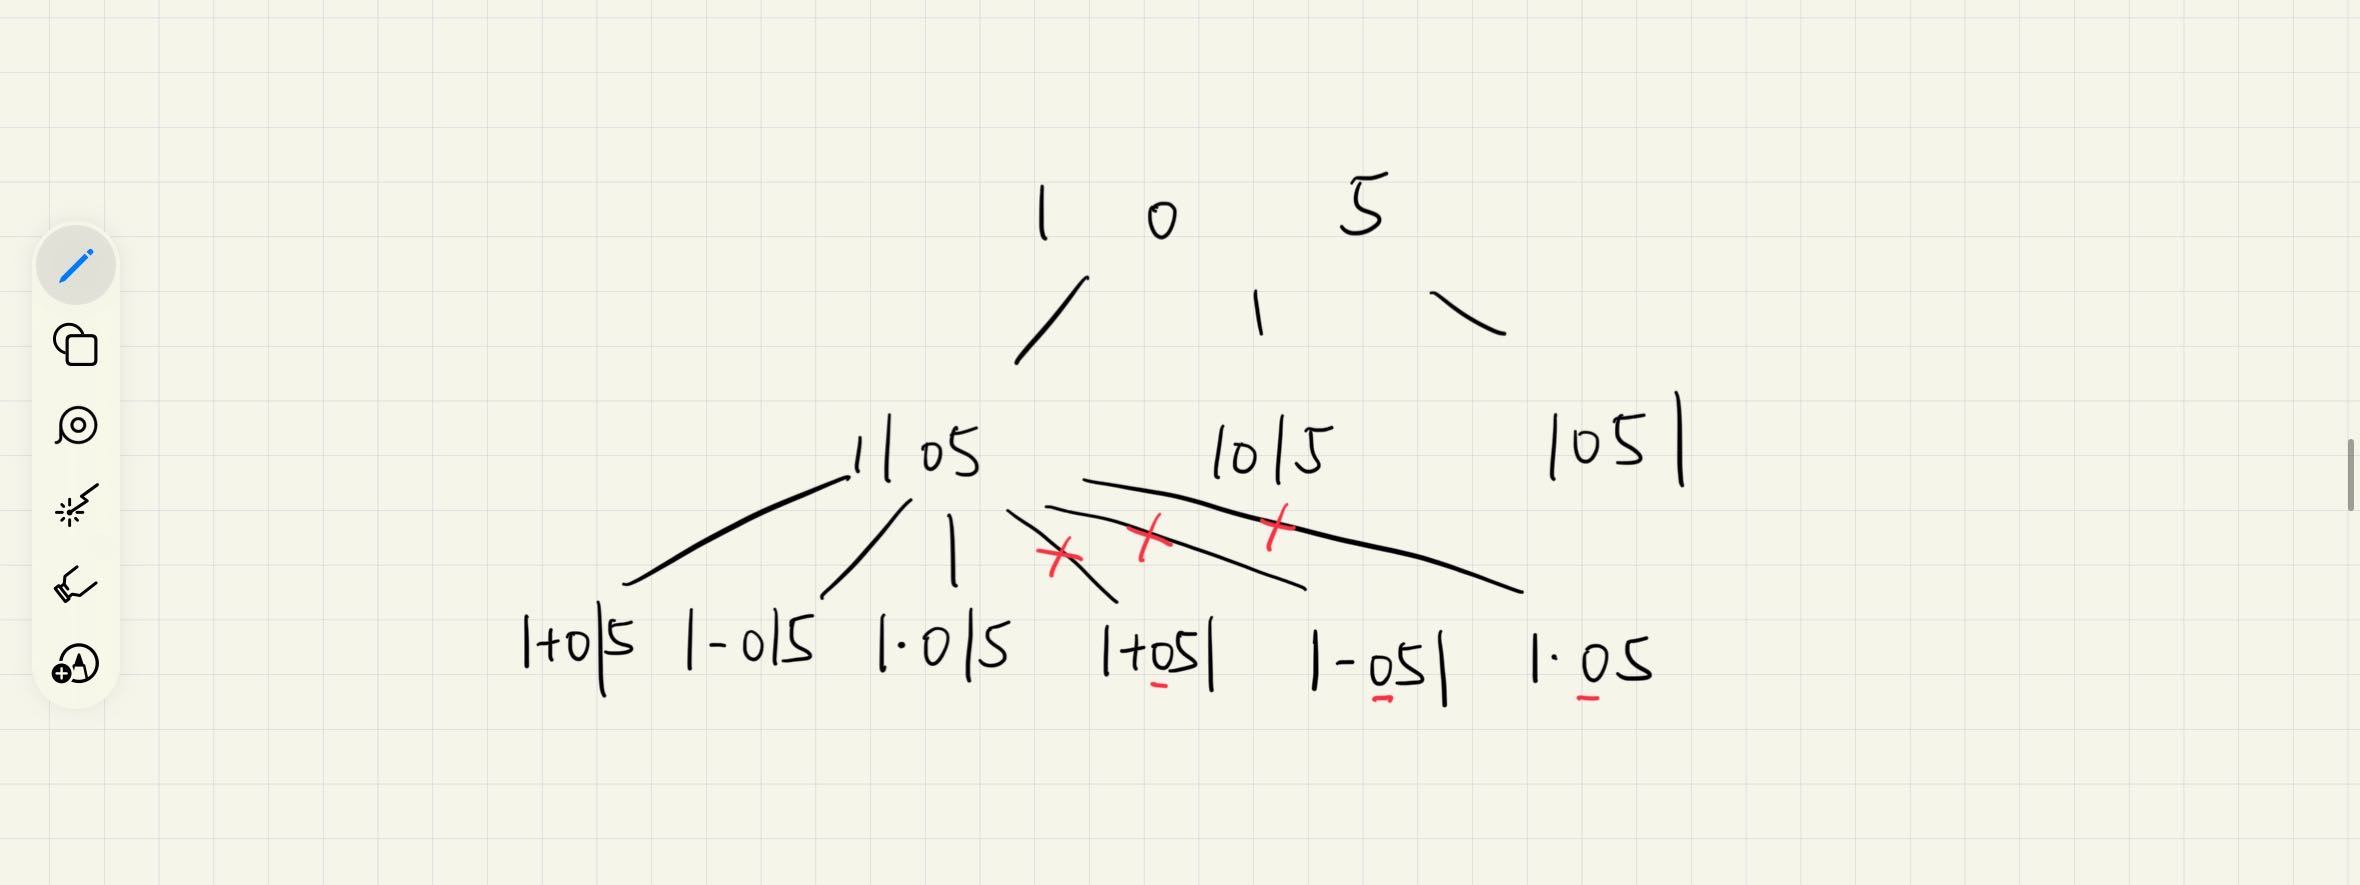 1 0 5
1|05 10|5 105|
1+0|5 1-0|5 1·0|5 1+05| 1-05| 1·05